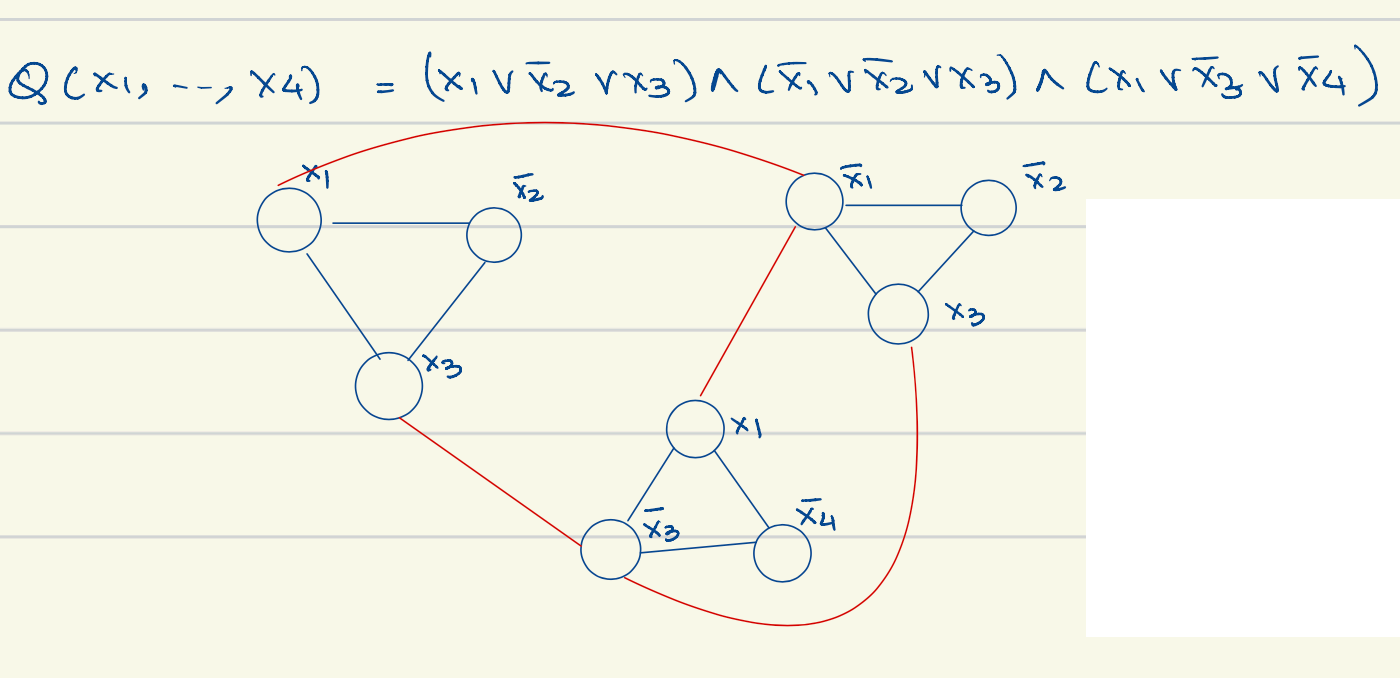 Q(x1, --, x4) = (x1 ∨ x̅2 ∨ x3) ∧ (x̅1 ∨ x̅2 ∨ x3) ∧ (x1 ∨ x̅3 ∨ x̅4)
x1
x̅2
x̅1
x̅2
x3
x3
x1
x̅3
x̅4